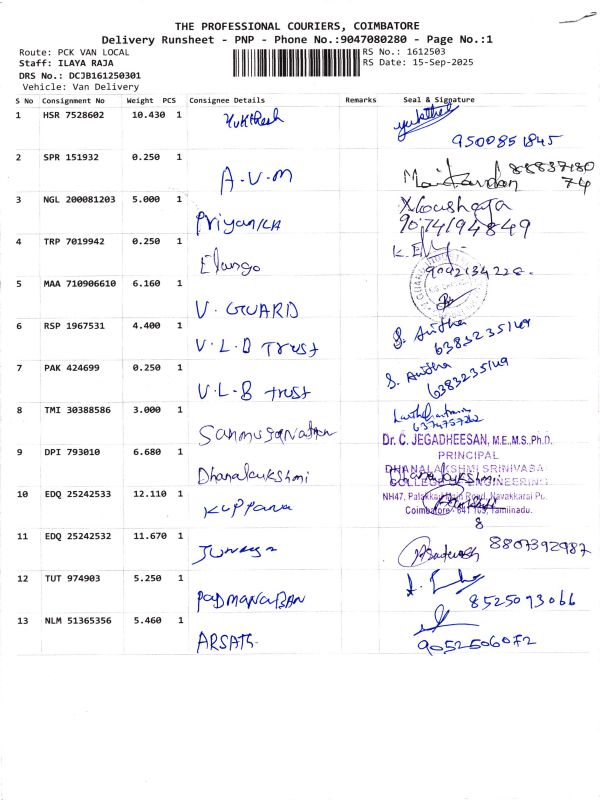 THE PROFESSIONAL COURIERS, COIMBATORE
Delivery Runsheet - PNP - Phone No.:9047080280 - Page No.:1
Route: PCK VAN LOCAL RS No.: 1612503
Staff: ILAYA RAJA RS Date: 15-Sep-2025
DRS No.: DCJB161250301
Vehicle: Van Delivery
S No Consignment No Weight PCS Consignee Details Remarks Seal & Signature
1 HSR 7528602 10.430 1
9500851845
2 SPR 151932 0.250 1 A.V.M
3 NGL 200081203 5.000 1 Priyanka
4 TRP 7019942 0.250 1 Elango
5 MAA 710906610 6.160 1 V. GUARD
6 RSP 1967531 4.400 1 V.L.B Trust S. Anitha
6383235149
7 PAK 424699 0.250 1 V.L.B trust S. Anitha
6383235149
8 TMI 30388586 3.000 1
Dr. C. JEGADHEESAN, M.E.,M.S.,Ph.D.
PRINCIPAL
9 DPI 793010 6.680 1 Dhanalakshmi DHANALAKSHMI SRINIVASA
COLLEGE OF ENGINEERING
10 EDQ 25242533 12.110 1 NH47, Palakkad Main Road, Navakkarai Po,
Coimbatore - 641 105, Tamilnadu.
8
11 EDQ 25242532 11.670 1 8807392987
12 TUT 974903 5.250 1 PADMANABAN 8525093066
13 NLM 51365356 5.460 1
9052506072